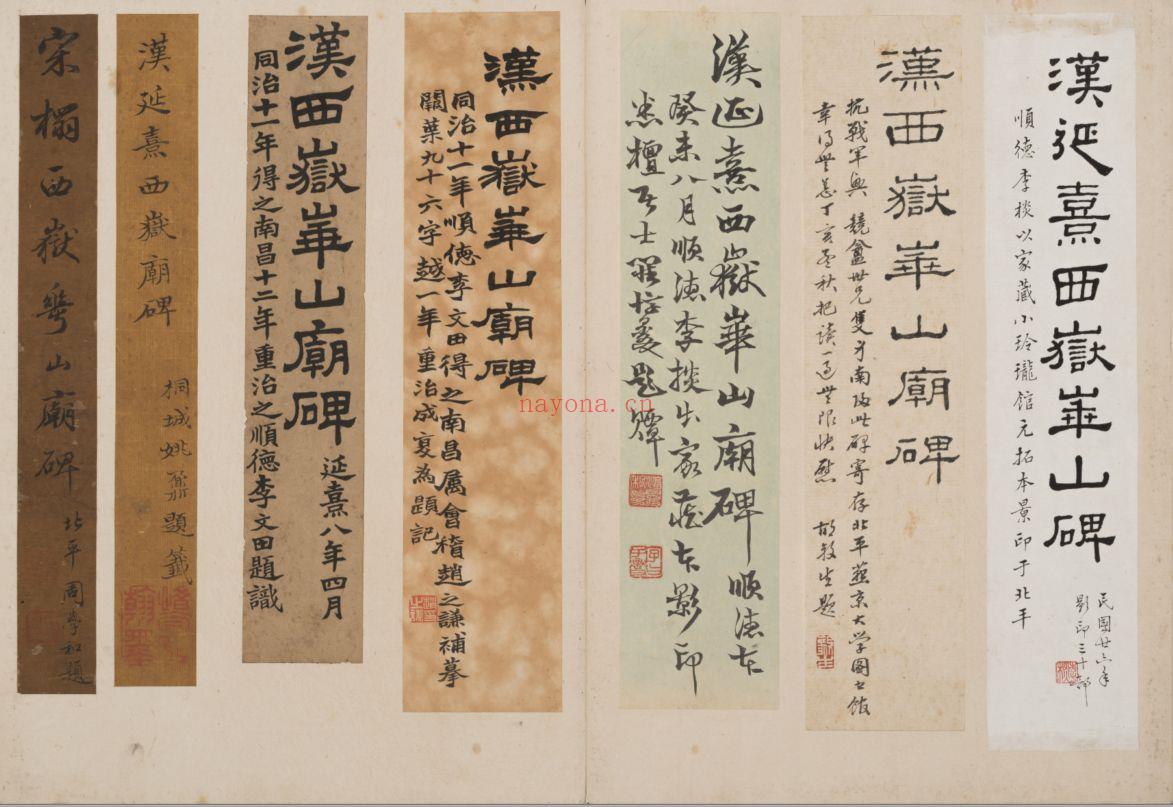 漢延熹西嶽華山碑
順德李棪以家藏小玲瓏馆元拓本景印于北平
民國廿六年
影印三十部
漢西嶽華山廟碑
抗戰軍興 競盦世兄隻身南歸此碑寄存北平燕京大学圖书館
幸得無恙丁亥孟秋把读一過無限快慰 胡毅生題
漢延熹西嶽華山廟碑 順德本
癸未八月順德李棪出家藏本影印
悉檀居士羅惇㬊題贉
漢西嶽華山廟碑
同治十一年順德李文田得之南昌属會稽趙之謙補摹
闕葉九十六字越一年重治成复為題記
漢西嶽華山廟碑 延熹八年四月
同治十一年得之南昌十二年重治之順德李文田題識
漢延熹西嶽廟碑
桐城姚鼐題籤
宋搨西嶽華山廟碑
北平周學 題
nayona.cn